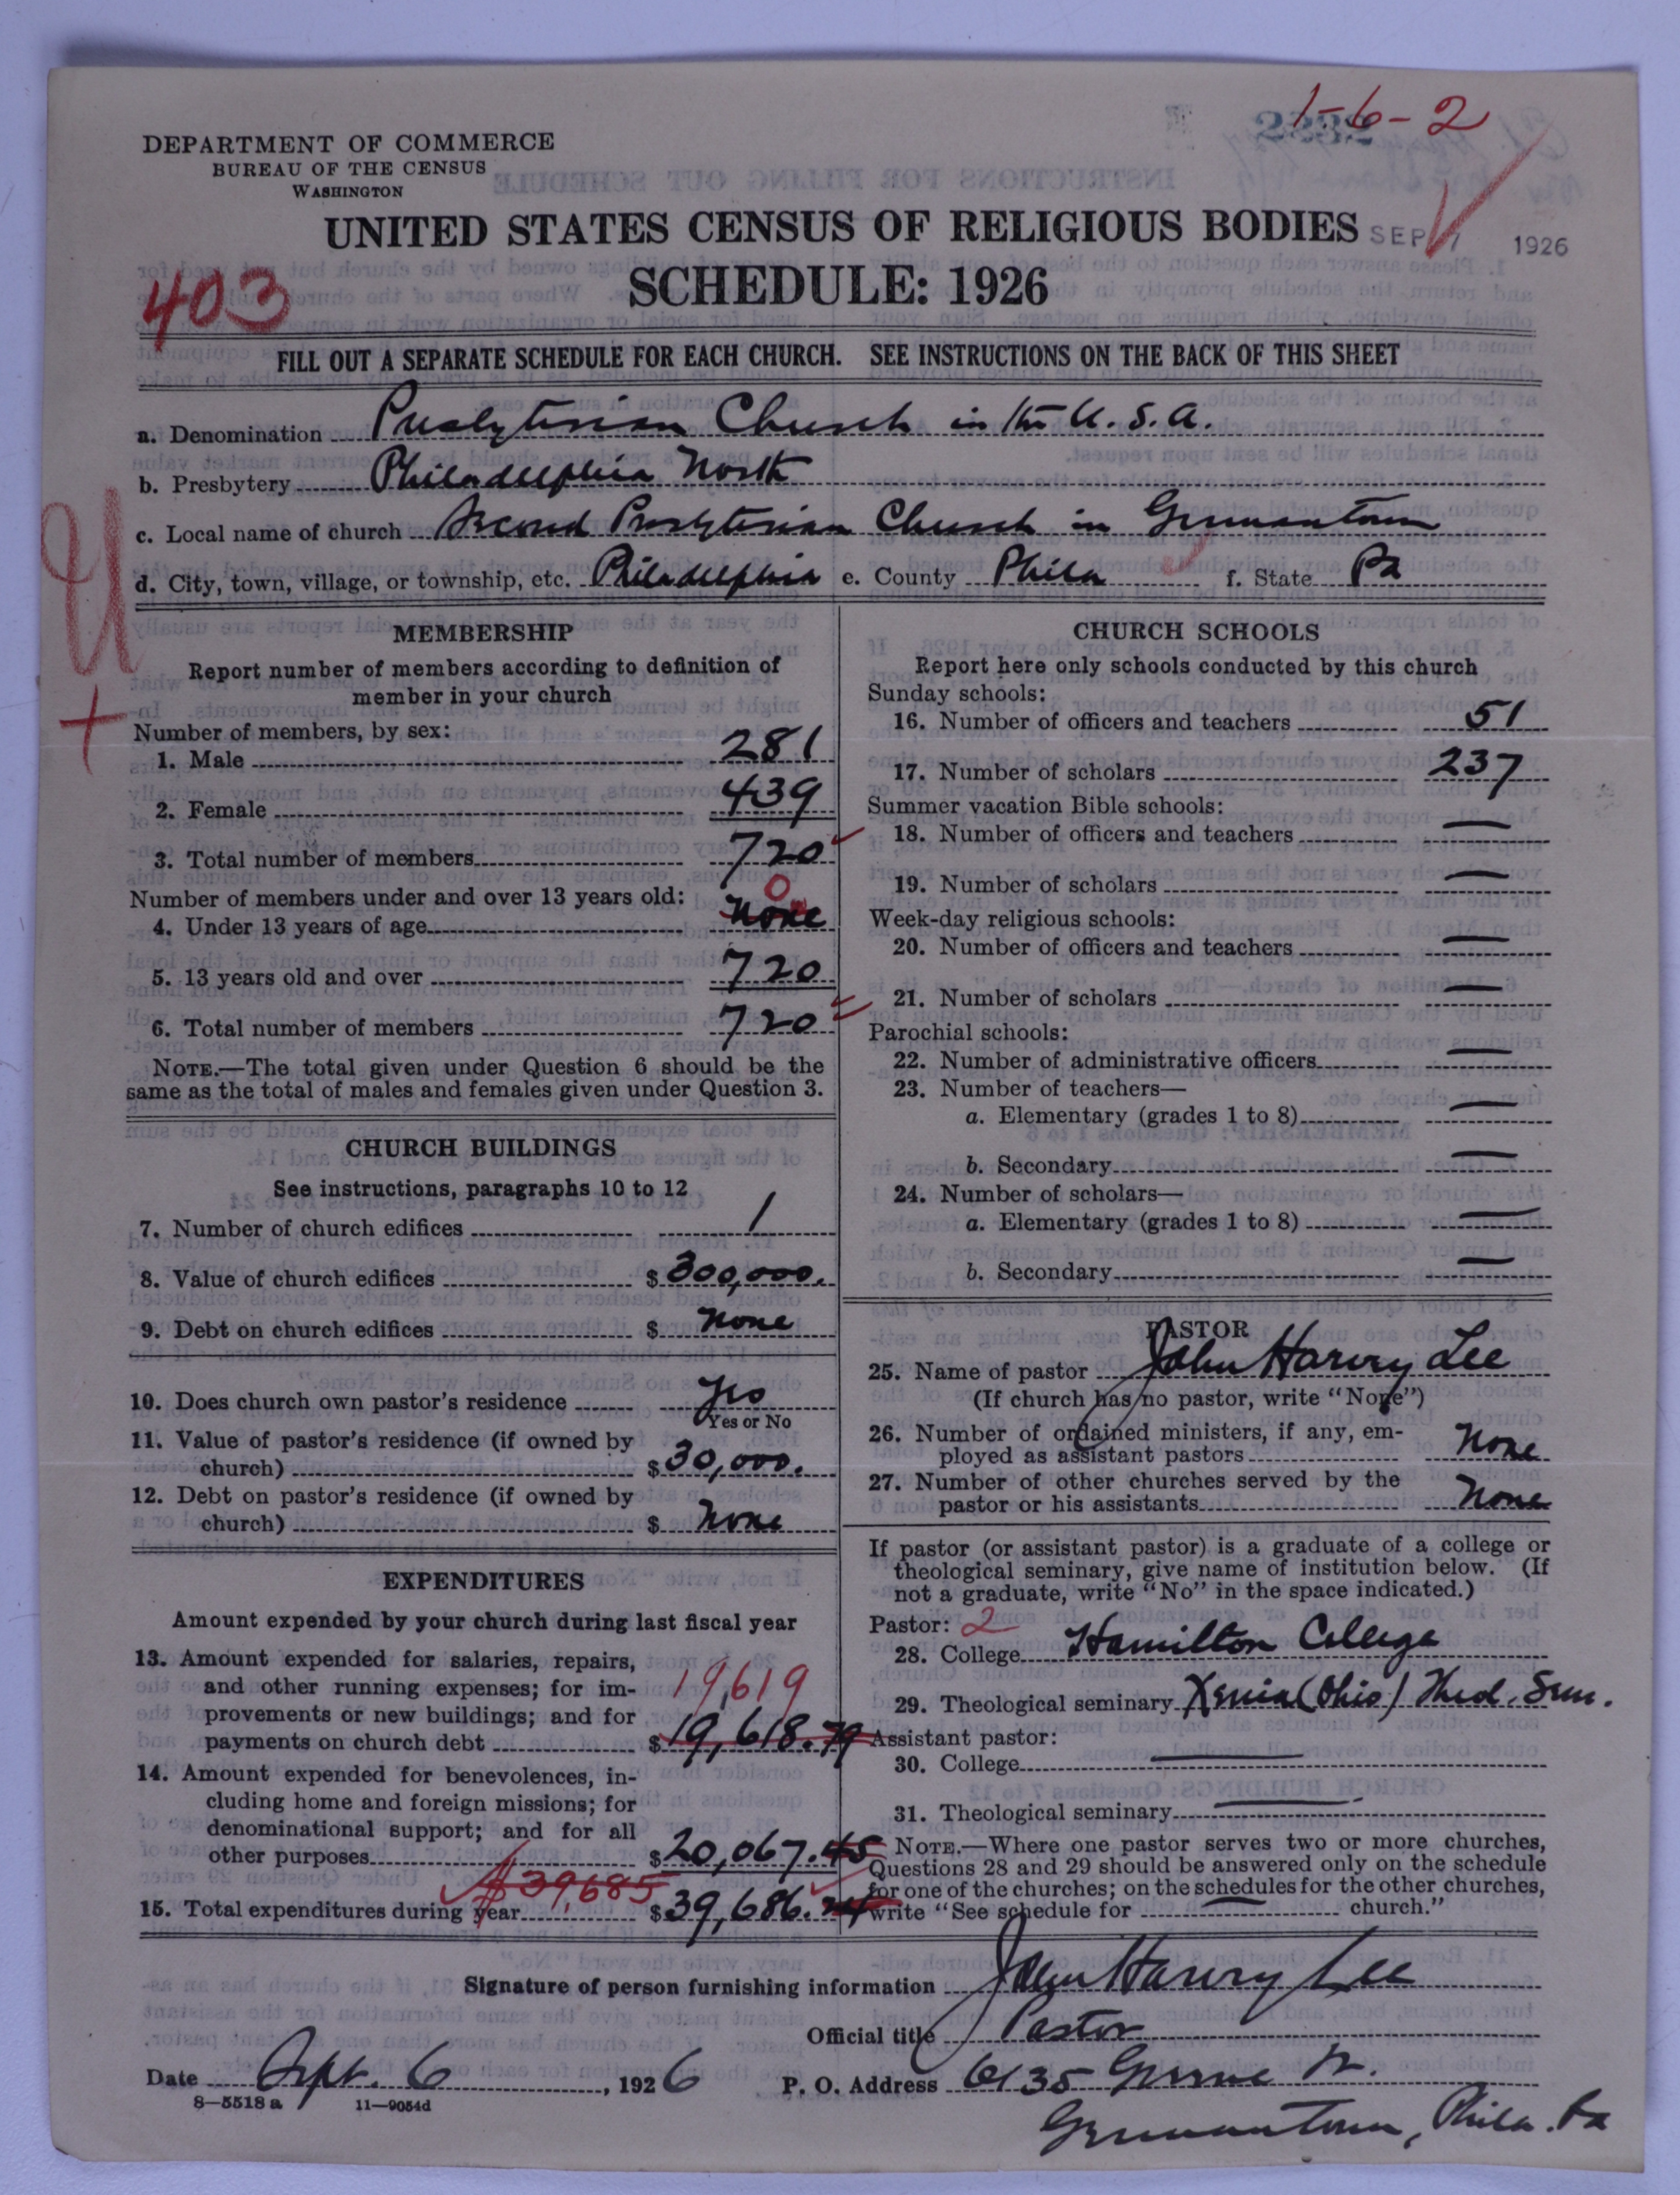 1-6-2
DEPARTMENT OF COMMERCE
BUREAU OF THE CENSUS
WASHINGTON
UNITED STATES CENSUS OF RELIGIOUS BODIES
SEP 7 1926
SCHEDULE: 1926
403
FILL OUT A SEPARATE SCHEDULE FOR EACH CHURCH. SEE INSTRUCTIONS ON THE BACK OF THIS SHEET
a. Denomination Presbyterian Church in the U.S.A.
b. Presbytery Philadelphia North
c. Local name of church Second Presbyterian Church in Germantown
d. City, town, village, or township, etc. Philadelphia e. County Phila f. State Pa
MEMBERSHIP
Report number of members according to definition of
member in your church
Number of members, by sex:
1. Male 281
2. Female 439
3. Total number of members 720
Number of members under and over 13 years old:
0
4. Under 13 years of age none
5. 13 years old and over 720
6. Total number of members 720
NOTE.—The total given under Question 6 should be the
same as the total of males and females given under Question 3.
CHURCH BUILDINGS
See instructions, paragraphs 10 to 12
7. Number of church edifices 1
8. Value of church edifices $ 300,000.
9. Debt on church edifices $ none
10. Does church own pastor's residence Yes
Yes or No
11. Value of pastor's residence (if owned by
church) $ 30,000.
12. Debt on pastor's residence (if owned by
church) $ none
EXPENDITURES
Amount expended by your church during last fiscal year
13. Amount expended for salaries, repairs,
and other running expenses; for im-
provements or new buildings; and for
payments on church debt $ 19,618.79
19,619
14. Amount expended for benevolences, in-
cluding home and foreign missions; for
denominational support; and for all
other purposes $ 20,067.45
$39,685
15. Total expenditures during year $ 39,686.24
CHURCH SCHOOLS
Report here only schools conducted by this church
Sunday schools:
16. Number of officers and teachers 51
17. Number of scholars 237
Summer vacation Bible schools:
18. Number of officers and teachers —
19. Number of scholars —
Week-day religious schools:
20. Number of officers and teachers —
21. Number of scholars —
Parochial schools:
22. Number of administrative officers —
23. Number of teachers—
a. Elementary (grades 1 to 8) —
b. Secondary —
24. Number of scholars—
a. Elementary (grades 1 to 8) —
b. Secondary —
PASTOR
25. Name of pastor John Harvey Lee
(If church has no pastor, write "None")
26. Number of ordained ministers, if any, em-
ployed as assistant pastors None
27. Number of other churches served by the
pastor or his assistants None
If pastor (or assistant pastor) is a graduate of a college or
theological seminary, give name of institution below. (If
not a graduate, write "No" in the space indicated.)
Pastor: 2
28. College Hamilton College
29. Theological seminary Xenia (Ohio) Theol. Sem.
Assistant pastor:
30. College —
31. Theological seminary —
NOTE.—Where one pastor serves two or more churches,
Questions 28 and 29 should be answered only on the schedule
for one of the churches; on the schedules for the other churches,
write "See schedule for — church."
Signature of person furnishing information John Harvey Lee
Official title Pastor
Date Sept. 6, 1926 P. O. Address 6135 Greene St.
Germantown, Phila. Pa
8—5518 a 11—9054d